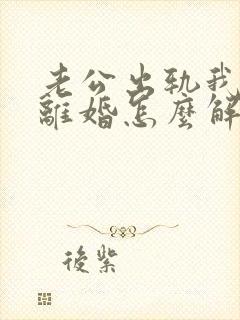 老公出轨我
離婚怎麼解
後紫